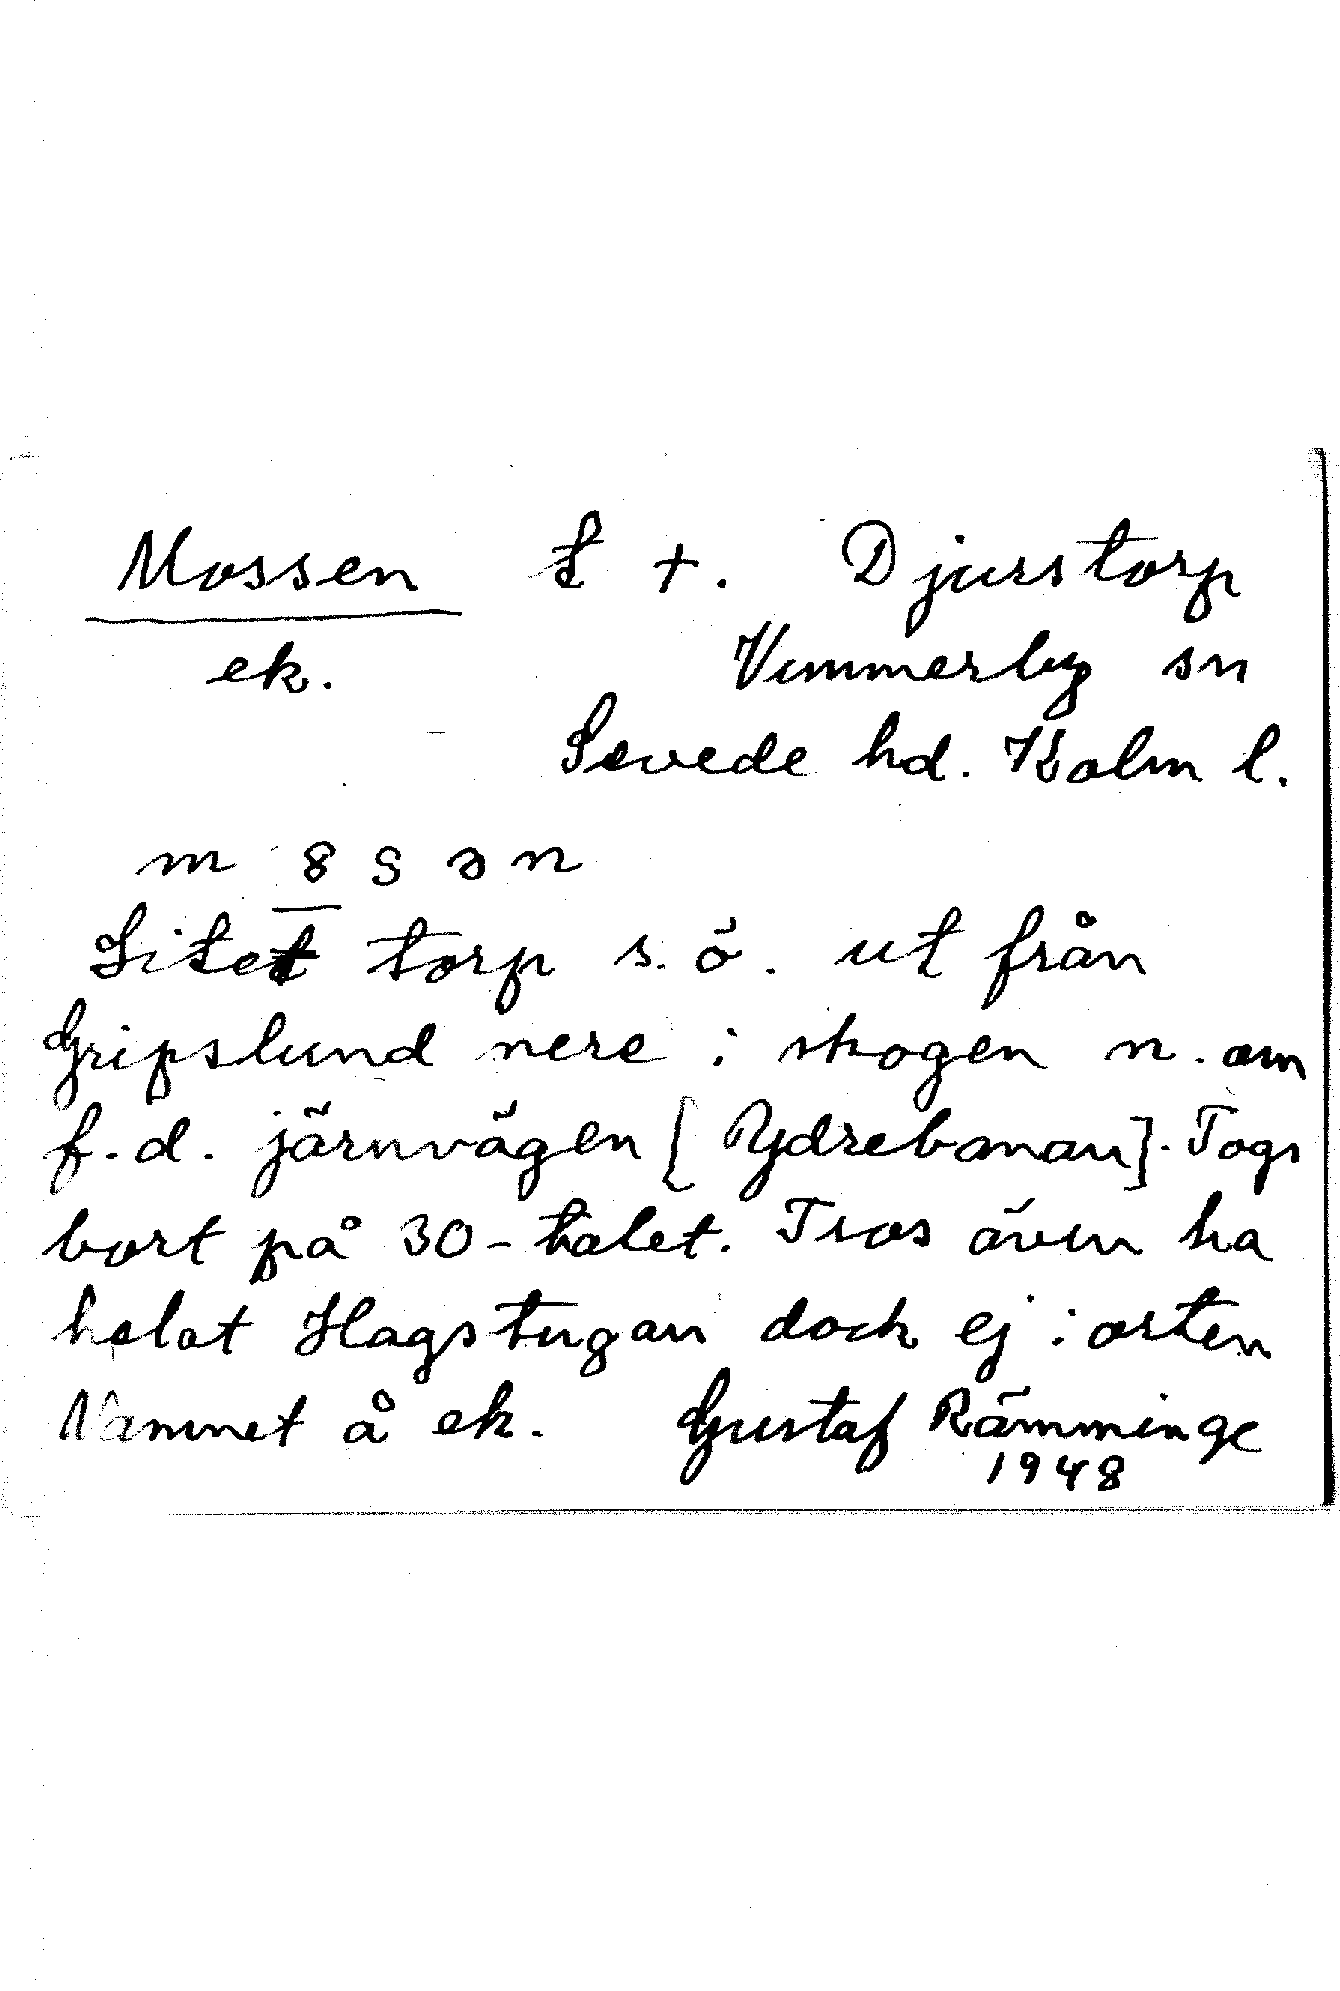 Mossen t +. Djurstorp
ek. Vimmerby sn
Sevede hd. Kalm l.
m 8 s ə n
Litet torp s.ö. ut från
Gripslund nere i skogen n. om
f.d. järnvägen [Ydrebanan]. Togs
bort på 30-talet. Tros även ha
hetat Hagstugan doch ej i orten
Namnet å ek. Gustaf Rämminge
1948